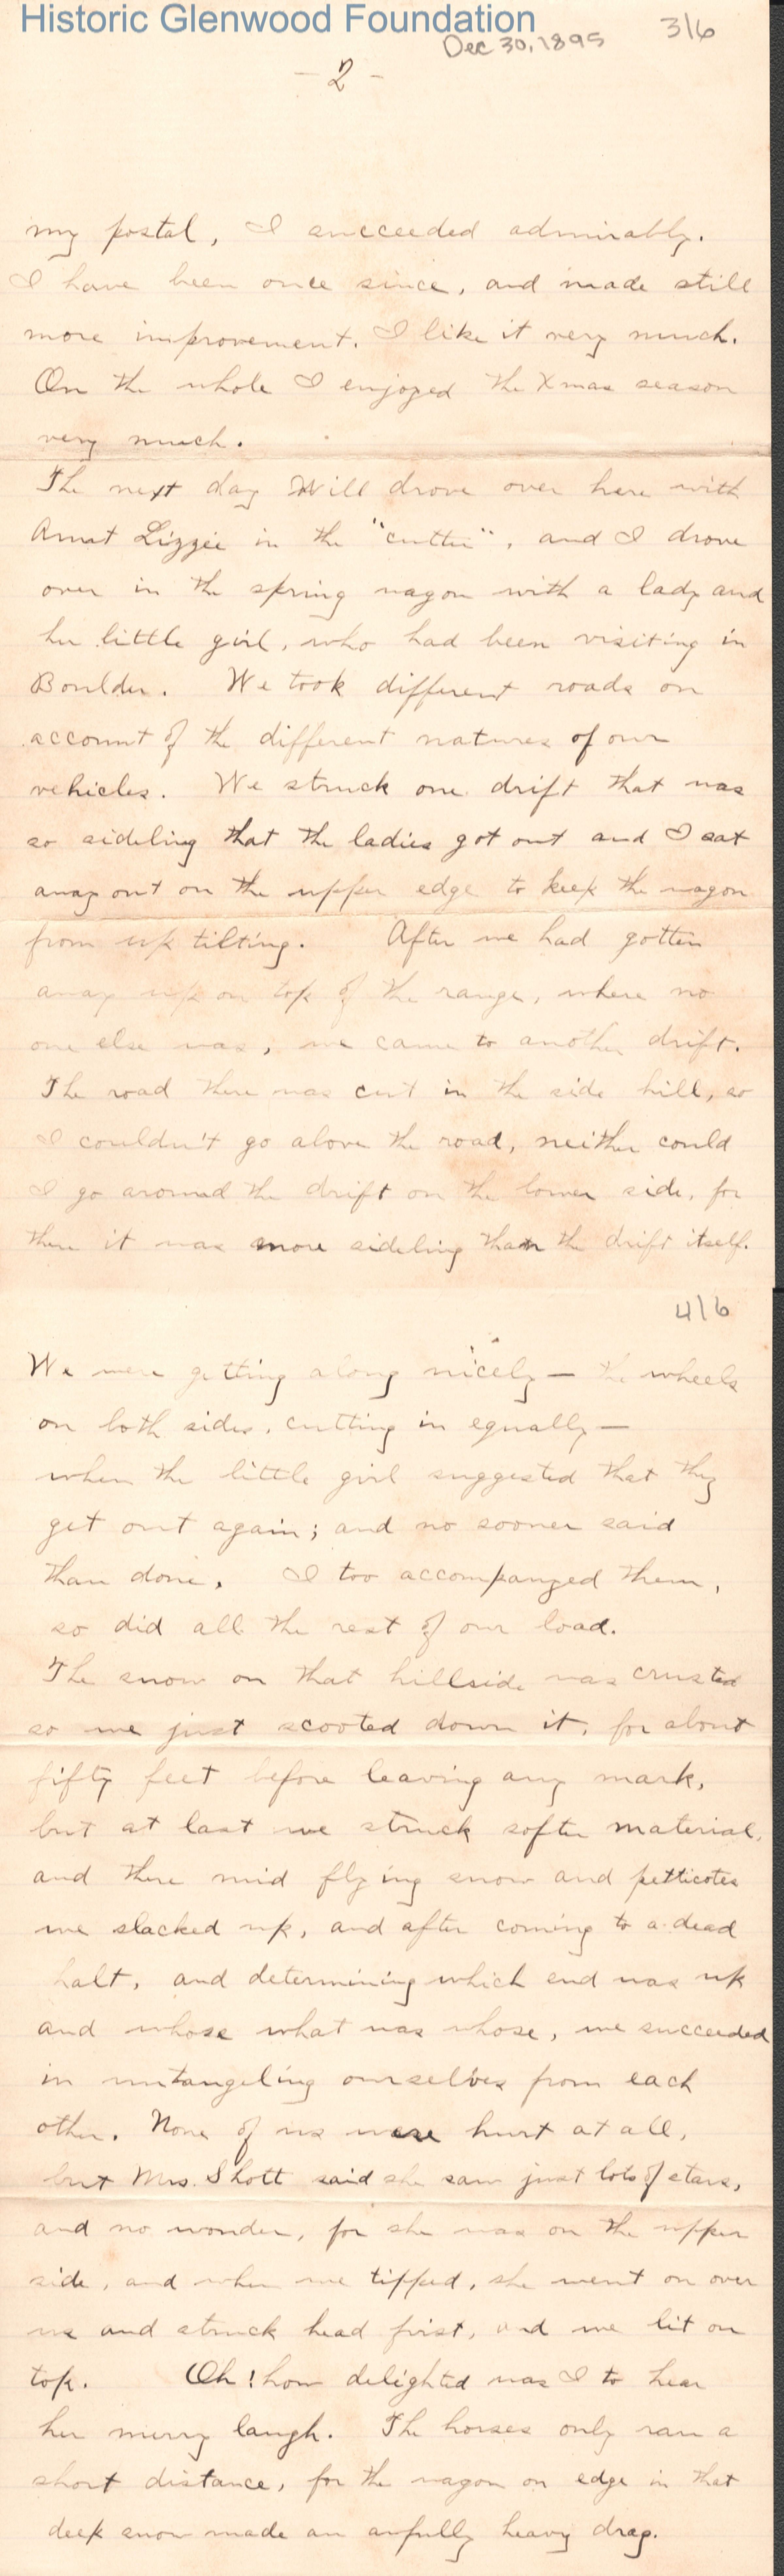 Historic Glenwood Foundation
Dec 30, 1895
3/6
- 2 -
my postal, I succeeded admirably.
I have been once since, and made still
more improvement. I like it very much.
On the whole I enjoyed the Xmas season
very much.
The next day Will drove over here with
Aunt Lizzie in the "cutter", and I drove
over in the spring wagon with a lady and
her little girl, who had been visiting in
Boulder. We took different roads on
account of the different natures of our
vehicles. We struck one drift that was
so sideling that the ladies got out and I sat
away out on the upper edge to keep the wagon
from up tilting. After we had gotten
away up on top of the range, where no
one else was, we came to another drift.
The road there was cut in the side hill, so
I couldn't go above the road, neither could
I go around the drift on the lower side, for
there it was more sideling than the drift itself.
4/6
We were getting along nicely — the wheels
on both sides, cutting in equally —
when the little girl suggested that they
get out again; and no sooner said
than done. I too accompanyed them,
so did all the rest of our load.
The snow on that hillside was crusted
so we just scooted down it, for about
fifty feet before leaving any mark,
but at last we struck softer material,
and there mid flying snow and petticotes
we slacked up, and after coming to a dead
halt, and determining which end was up
and whose what was whose, we succeeded
in untangeling ourselves from each
other. None of us were hurt at all,
but Mrs. Shott said she saw just lots of stars,
and no wonder, for she was on the upper
side, and when we tipped, she went on over
us and struck head first, and we lit on
top. Oh! how delighted was I to hear
her merry laugh. The horses only ran a
short distance, for the wagon on edge in that
deep snow made an awfully heavy drag.